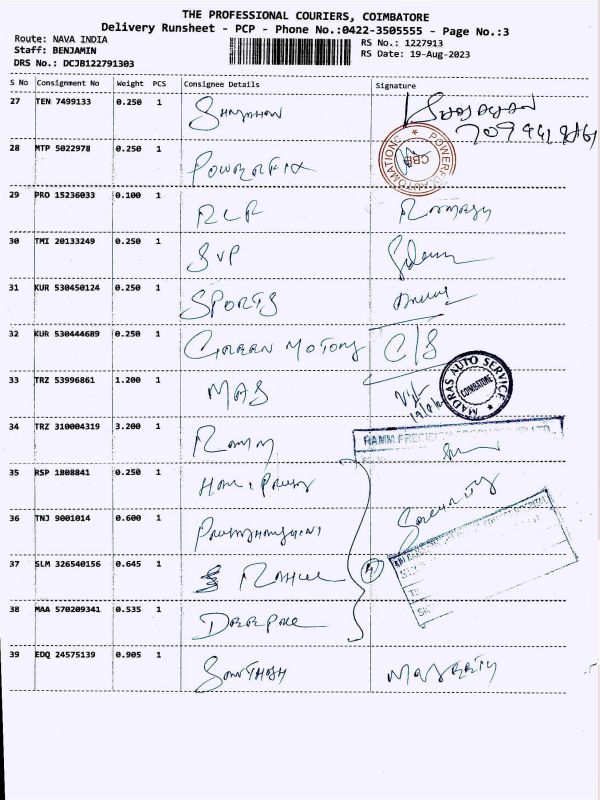 THE PROFESSIONAL COURIERS, COIMBATORE
Delivery Runsheet - PCP - Phone No.:0422-3505555 - Page No.:3
Route: NAVA INDIA
RS No.: 1227913
Staff: BENJAMIN
RS Date: 19-Aug-2023
DRS No.: DCJB122791303
S No Consignment No Weight PCS Consignee Details Signature
27 TEN 7499133 0.250 1
28 MTP 5022978 0.250 1 POWERFIX
29 PRO 15236033 0.100 1
30 TMI 20133249 0.250 1 SVP
31 KUR 530450124 0.250 1 SPORTS
32 KUR 530444689 0.250 1 GREEN MOTORS C/S
33 TRZ 53996861 1.200 1 MAS
MADRAS AUTO SERVICE
COIMBATORE
34 TRZ 310004319 3.200 1
35 RSP 1808841 0.250 1
36 TNJ 9001014 0.600 1 Security
37 SLM 326540156 0.645 1 RAHUL
4
38 MAA 570209341 0.535 1 DEEPAK
39 EDQ 24575139 0.905 1 SANTHOSH